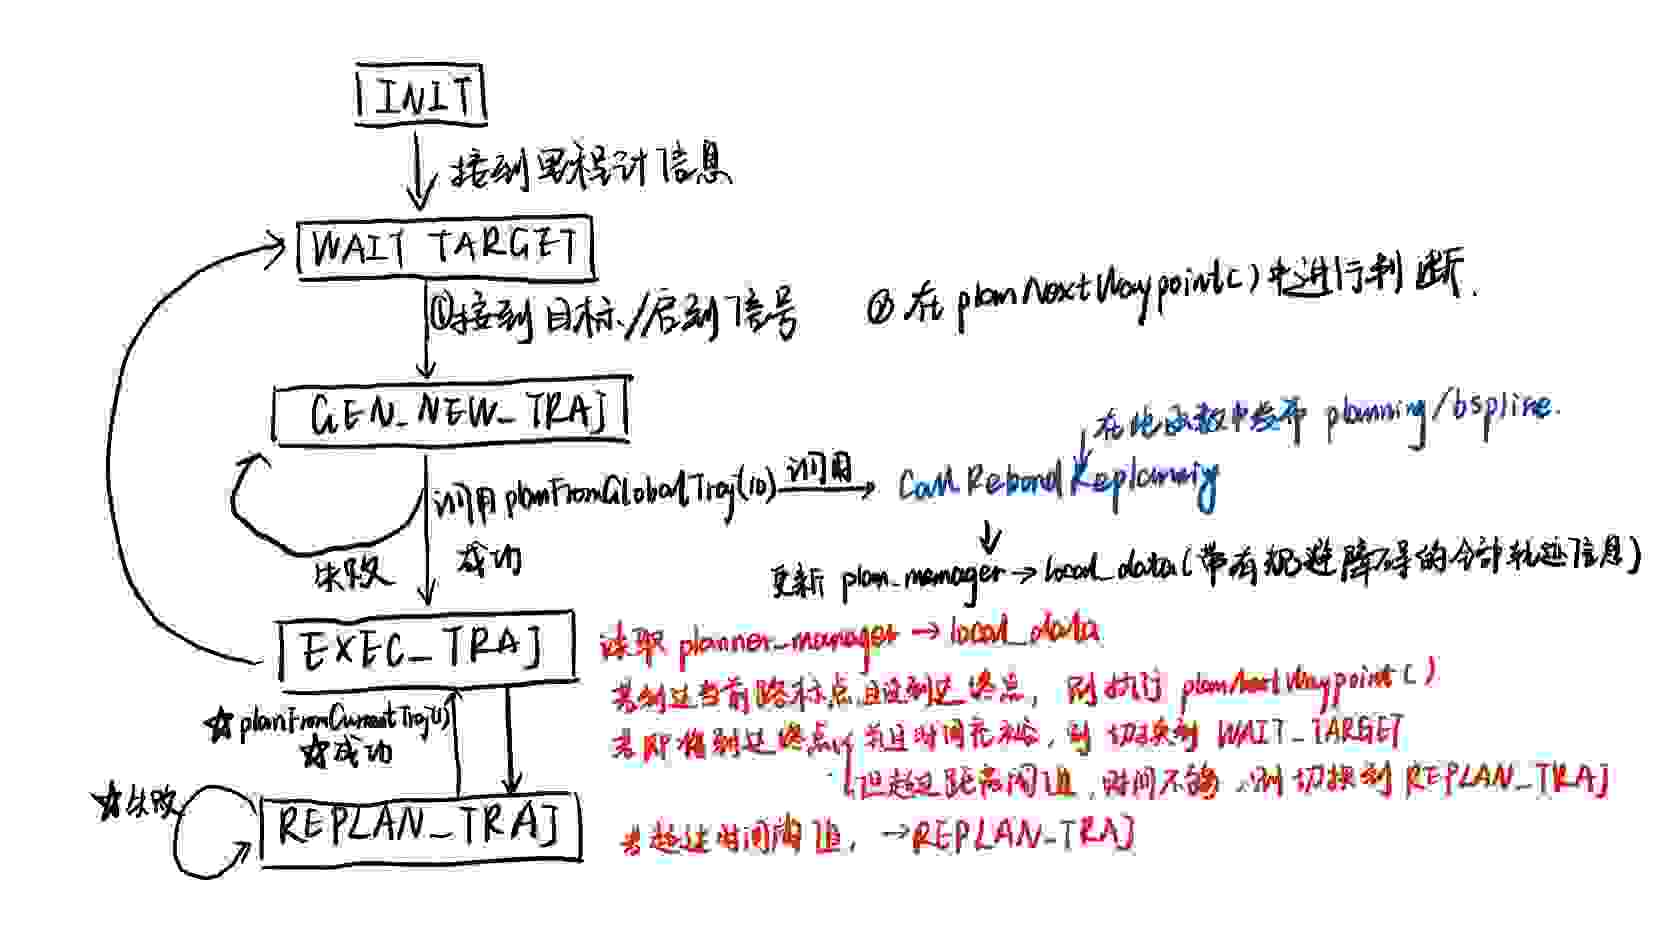 INIT
接到里程计信息
WAIT TARGET
①接到目标/启到信号
② 在 planNextWaypoint()中进行判断.
GEN_NEW_TRAJ
在此函数中发布 planning/bspline.
调用 planFromGlobalTraj(10) 调用
Call Rebond Replanning
失败
成功
更新 plan_manager→local_data(带有规避障碍的全部轨迹信息)
EXEC_TRAJ
读取 planner_manager → local_data
若到达当前路标点且没到达终点, 则执行 planNextWaypoint()
若即将到达终点 并且时间充裕, 则 切换到 WAIT_TARGET
但超过距离阈值, 时间不够, 则 切换到 REPLAN_TRAJ
若超过时间阈值, →REPLAN_TRAJ
☆planFromCurrentTraj()
☆成功
☆失败
REPLAN_TRAJ